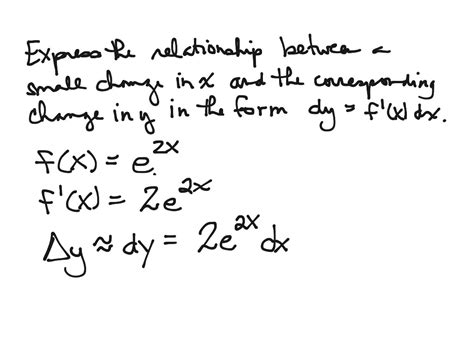 Express the relationship between a
small change in x and the corresponding
change in y in the form dy = f'(x) dx.
f(x) = e^{2x}
f'(x) = 2e^{2x}
Δy ≈ dy = 2e^{2x} dx